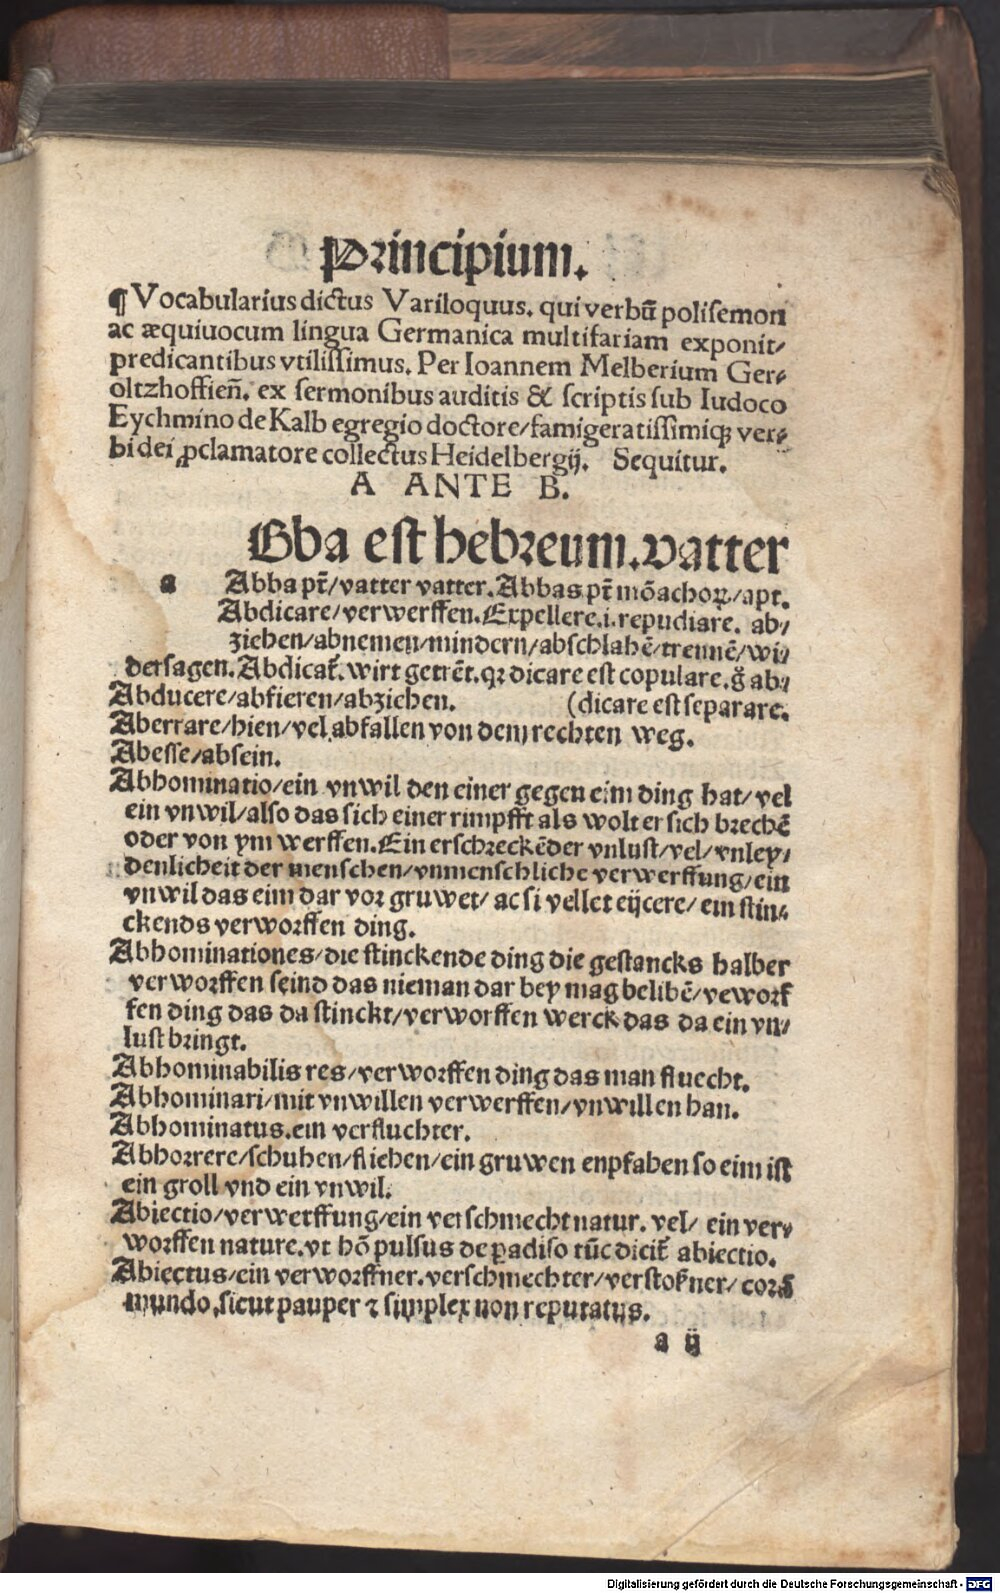 Principium.
¶ Vocabularius dictus Variloquus. qui verbū polisemon
ac æquiuocum lingua Germanica multifariam exponit/
predicantibus vtilissimus. Per Ioannem Melberium Ger⸗
oltzhoffieñ. ex sermonibus auditis & scriptis sub Iudoco
Eychmino de Kalb egregio doctore/famigeratissimiqꝫ ver⸗
bi dei ꝓclamatore collectus Heidelbergij. Sequitur.
A ANTE B.
Bba est hebreum. vatter
a Abba pr̄/vatter vatter. Abbas pr̄ mōachoꝝ/apt.
Abdicare/verwerffen. Expellere.i.repudiare. ab/
ziehen/abnemen/mindern/abschlahē/trennē/wi/
dersagen. Abdicat̄. wirt getrēt. qꝛ dicare est copulare. g̊ ab/
Abducere/abfieren/abziehen. (dicare est separare.
Aberrare/hien/vel abfallen von dem rechten weg.
Abesse/absein.
Abhominatio/ein vnwil den einer gegen eim ding hat/vel
ein vnwil/also das sich einer rimpfft als wolt er sich brechē
oder von ym werffen. Ein erschreckēder vnlust/vel/vnley/
denlicheit der menschen/vnmenschliche verwerffung/ein
vnwil das eim dar vor gruwet/ ac si vellet eijcere/ ein stin⸗
ckends verworffen ding.
Abhominationes/die stinckende ding die gestancks halber
verworffen seind das nieman dar bey mag belibē/veworf
fen ding das da stinckt/verworffen werck das da ein vn/
lust bringt.
Abhominabilis res/verworffen ding das man fluecht.
Abhominari/mit vnwillen verwerffen/vnwillen han.
Abhominatus.ein verfluchter.
Abhorrere/schuhen/fliehen/ein gruwen enpfahen so eim ist
ein groll vnd ein vnwil.
Abiectio/verwerffung/ein verschmecht natur. vel/ ein ver⸗
worffen nature. vt hō pulsus de ꝑadiso tūc dicit̄ abiectio.
Abiectus/ein verworffner. verschmechter/verstoßner/ corā
mundo, sicut pauper ⁊ simplex non reputatus.
a ij
Digitalisierung gefördert durch die Deutsche Forschungsgemeinschaft - DFG